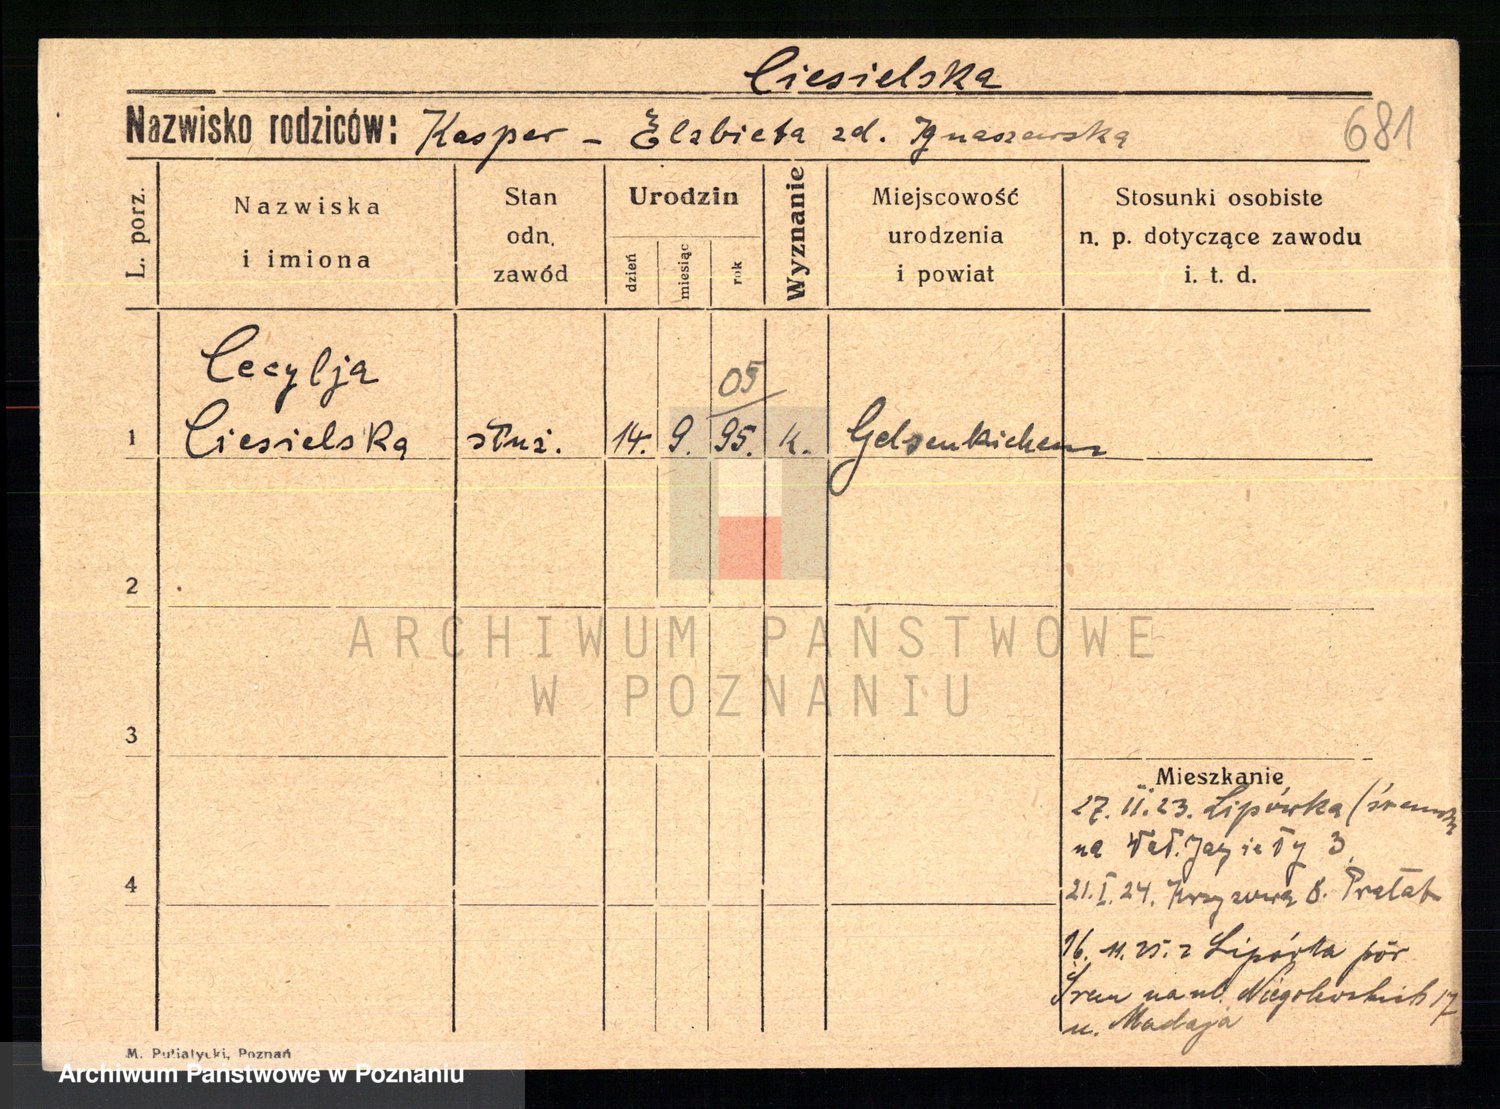 Ciesielska
Nazwisko rodziców: Kasper – Elzbieta zd. Ignaszewska
681
L. porz.
Nazwiska i imiona
Stan odn. zawód
Urodzin
dzień
miesiąc
rok
Wyznanie
Miejscowość urodzenia i powiat
Stosunki osobiste n. p. dotyczące zawodu i. t. d.
Cecylja
05
1 Ciesielska służ. 14. 9. 95. k. Gelsenkichen
2
3
4
ARCHIWUM PAŃSTWOWE
W POZNANIU
Mieszkanie
27. II. 23. Lipówka (śremski
na Wał. Jagiełły 3
21. I. 24. Krzyżowa 8. Prałat
16. 11. 25. z Lipówka pow
Śrem na ul. Niegolewskich 17
u. Madaja
M. Putiatycki, Poznań
Archiwum Państwowe w Poznaniu